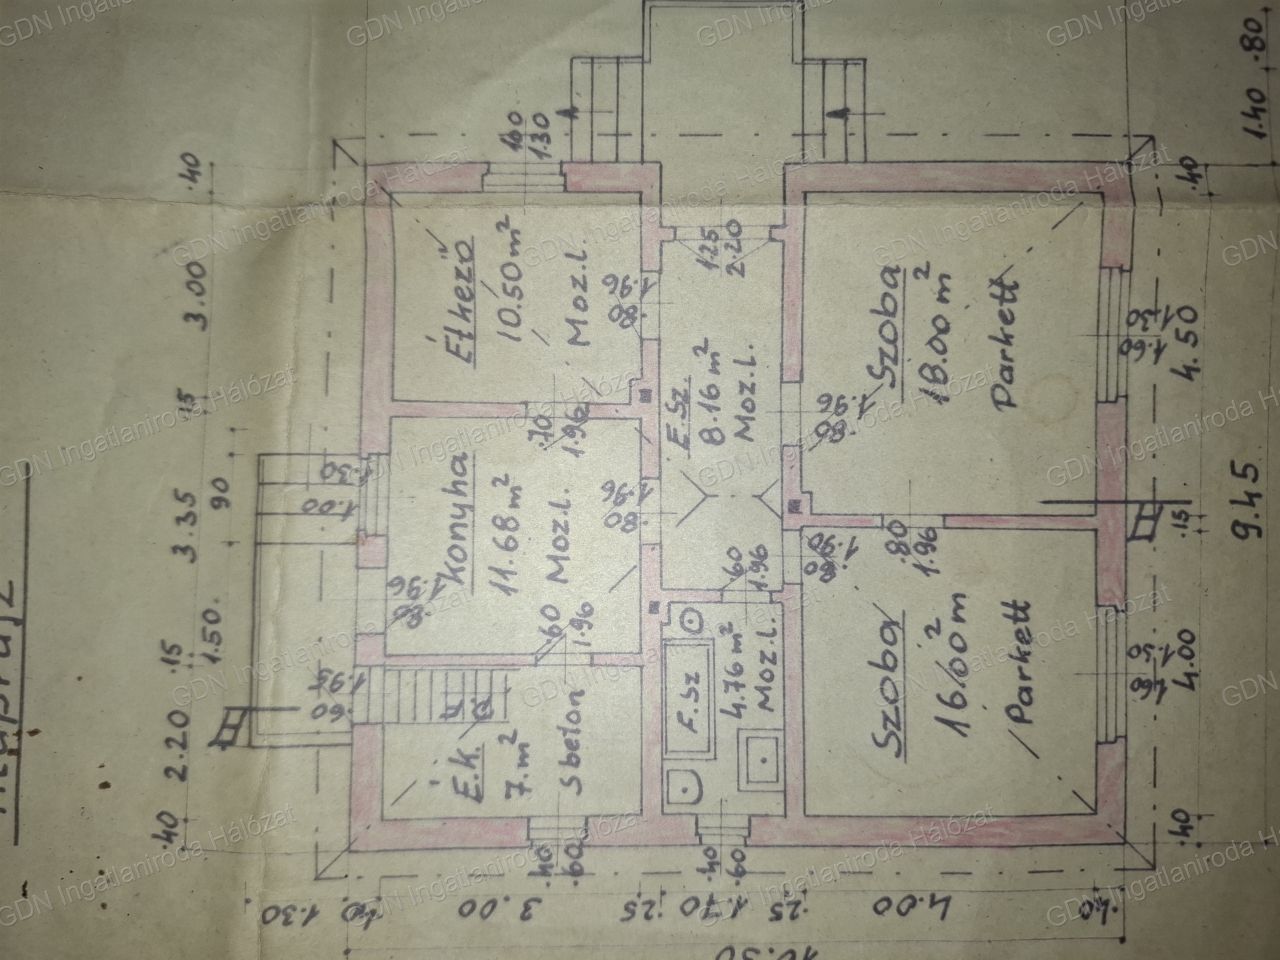 Alaprajz
Étkező
10.50 m²
Moz.l.
Konyha
11.68 m²
Moz.l.
É.K.
7. m²
Sbeton
E.Sz
8.16 m²
Moz.l.
F.Sz
4.76 m²
Moz.l.
Szoba
18.00 m²
Parkett
Szoba
16.00 m²
Parkett
.40
3.00
.15
3.35
.15
2.20
.40
90
1.50
1.30
.40
3.00
.25
1.70
.25
4.00
.40
10.30
.40
4.50
.15
4.00
.40
9.45
1.40
.80
1.60
1.30
1.25
2.20
.80
1.96
.70
1.96
.80
1.96
.60
1.96
.80
1.96
1.00
1.30
.60
1.95
.60
1.96
.80
1.96
.80
1.96
.80
1.96
.40
.60
.40
.60
1.60
1.60
GDN Ingatlaniroda Hálózat